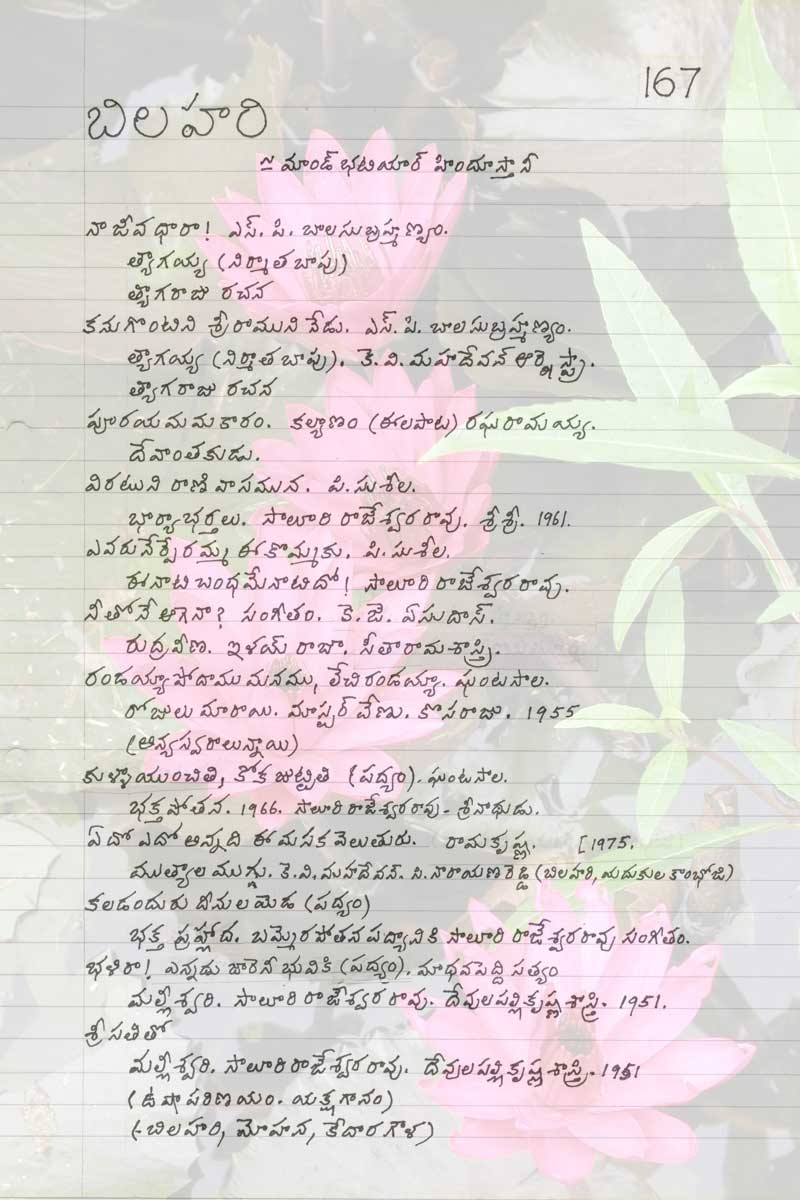 167
బిలహరి
~ మాండ్ భటియార్ హిందూస్తానీ
నా జీవధారా! ఎస్. పి. బాలసుబ్రహ్మణ్యం.
త్యాగయ్య (నిర్మాత బాపు)
త్యాగరాజు రచన
కనుగొంటిని శ్రీరాముని నేడు. ఎస్. పి. బాలసుబ్రహ్మణ్యం.
త్యాగయ్య (నిర్మాత బాపు). కె. వి. మహదేవన్ ఆర్కెస్ట్రా.
త్యాగరాజు రచన
పూరయ మమకారం. కల్యాణం (ఈలపాట) రఘురామయ్య.
దేవాంతకుడు.
విరటుని రాణివాసమున. పి. సుశీల.
భార్యాభర్తలు. సాలూరి రాజేశ్వరరావు. శ్రీశ్రీ. 1961.
ఎవరు నేర్పేరమ్మ ఈ కొమ్మకు. పి. సుశీల.
ఈనాటి బంధమేనాటిదో! సాలూరి రాజేశ్వరరావు.
నీతోనే ఆగెనా? సంగీతం. కె. జె. ఏసుదాస్.
రుద్రవీణ. ఇళయ్ రాజా. సీతారామశాస్త్రి.
రండయ్యా పోదాము మనము, లేచి రండయ్యా. ఘంటసాల.
రోజులు మారాయి. మాస్టర్ వేణు. కొసరాజు. 1955
(అన్యస్వరాలున్నాయి)
కుళ్ళాయుంచితి, కోక జుట్టితి (పద్యం). ఘంటసాల.
భక్త పోతన. 1966. సాలూరి రాజేశ్వరరావు - శ్రీనాథుడు.
ఏదో ఎదో అన్నది ఈ మసక వెలుతురు. రామకృష్ణ. [1975.
ముత్యాల ముగ్గు. కె. వి. మహదేవన్. సి. నారాయణరెడ్డి (బిలహరి, యదుకుల కాంభోజి)
కలడందురు దీనులయెడ (పద్యం)
భక్త ప్రహ్లాద. బమ్మెర పోతన పద్యానికి సాలూరి రాజేశ్వరరావు సంగీతం.
భళిరా! ఎన్నడు జారెనీ భువికి (పద్యం). మాధవపెద్ది సత్యం
మల్లీశ్వరి. సాలూరి రాజేశ్వరరావు. దేవులపల్లి కృష్ణశాస్త్రి. 1951.
శ్రీ సతితో
మల్లీశ్వరి. సాలూరి రాజేశ్వరరావు. దేవులపల్లి కృష్ణశాస్త్రి. 1951
(ఉషా పరిణయం. యక్షగానం)
(-బిలహరి, మోహన, కేదారగౌళ)